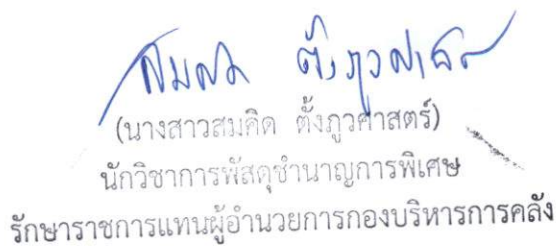 สมคิด ตั้งภูวศาสตร์
(นางสาวสมคิด ตั้งภูวศาสตร์)
นักวิชาการพัสดุชำนาญการพิเศษ
รักษาราชการแทนผู้อำนวยการกองบริหารการคลัง